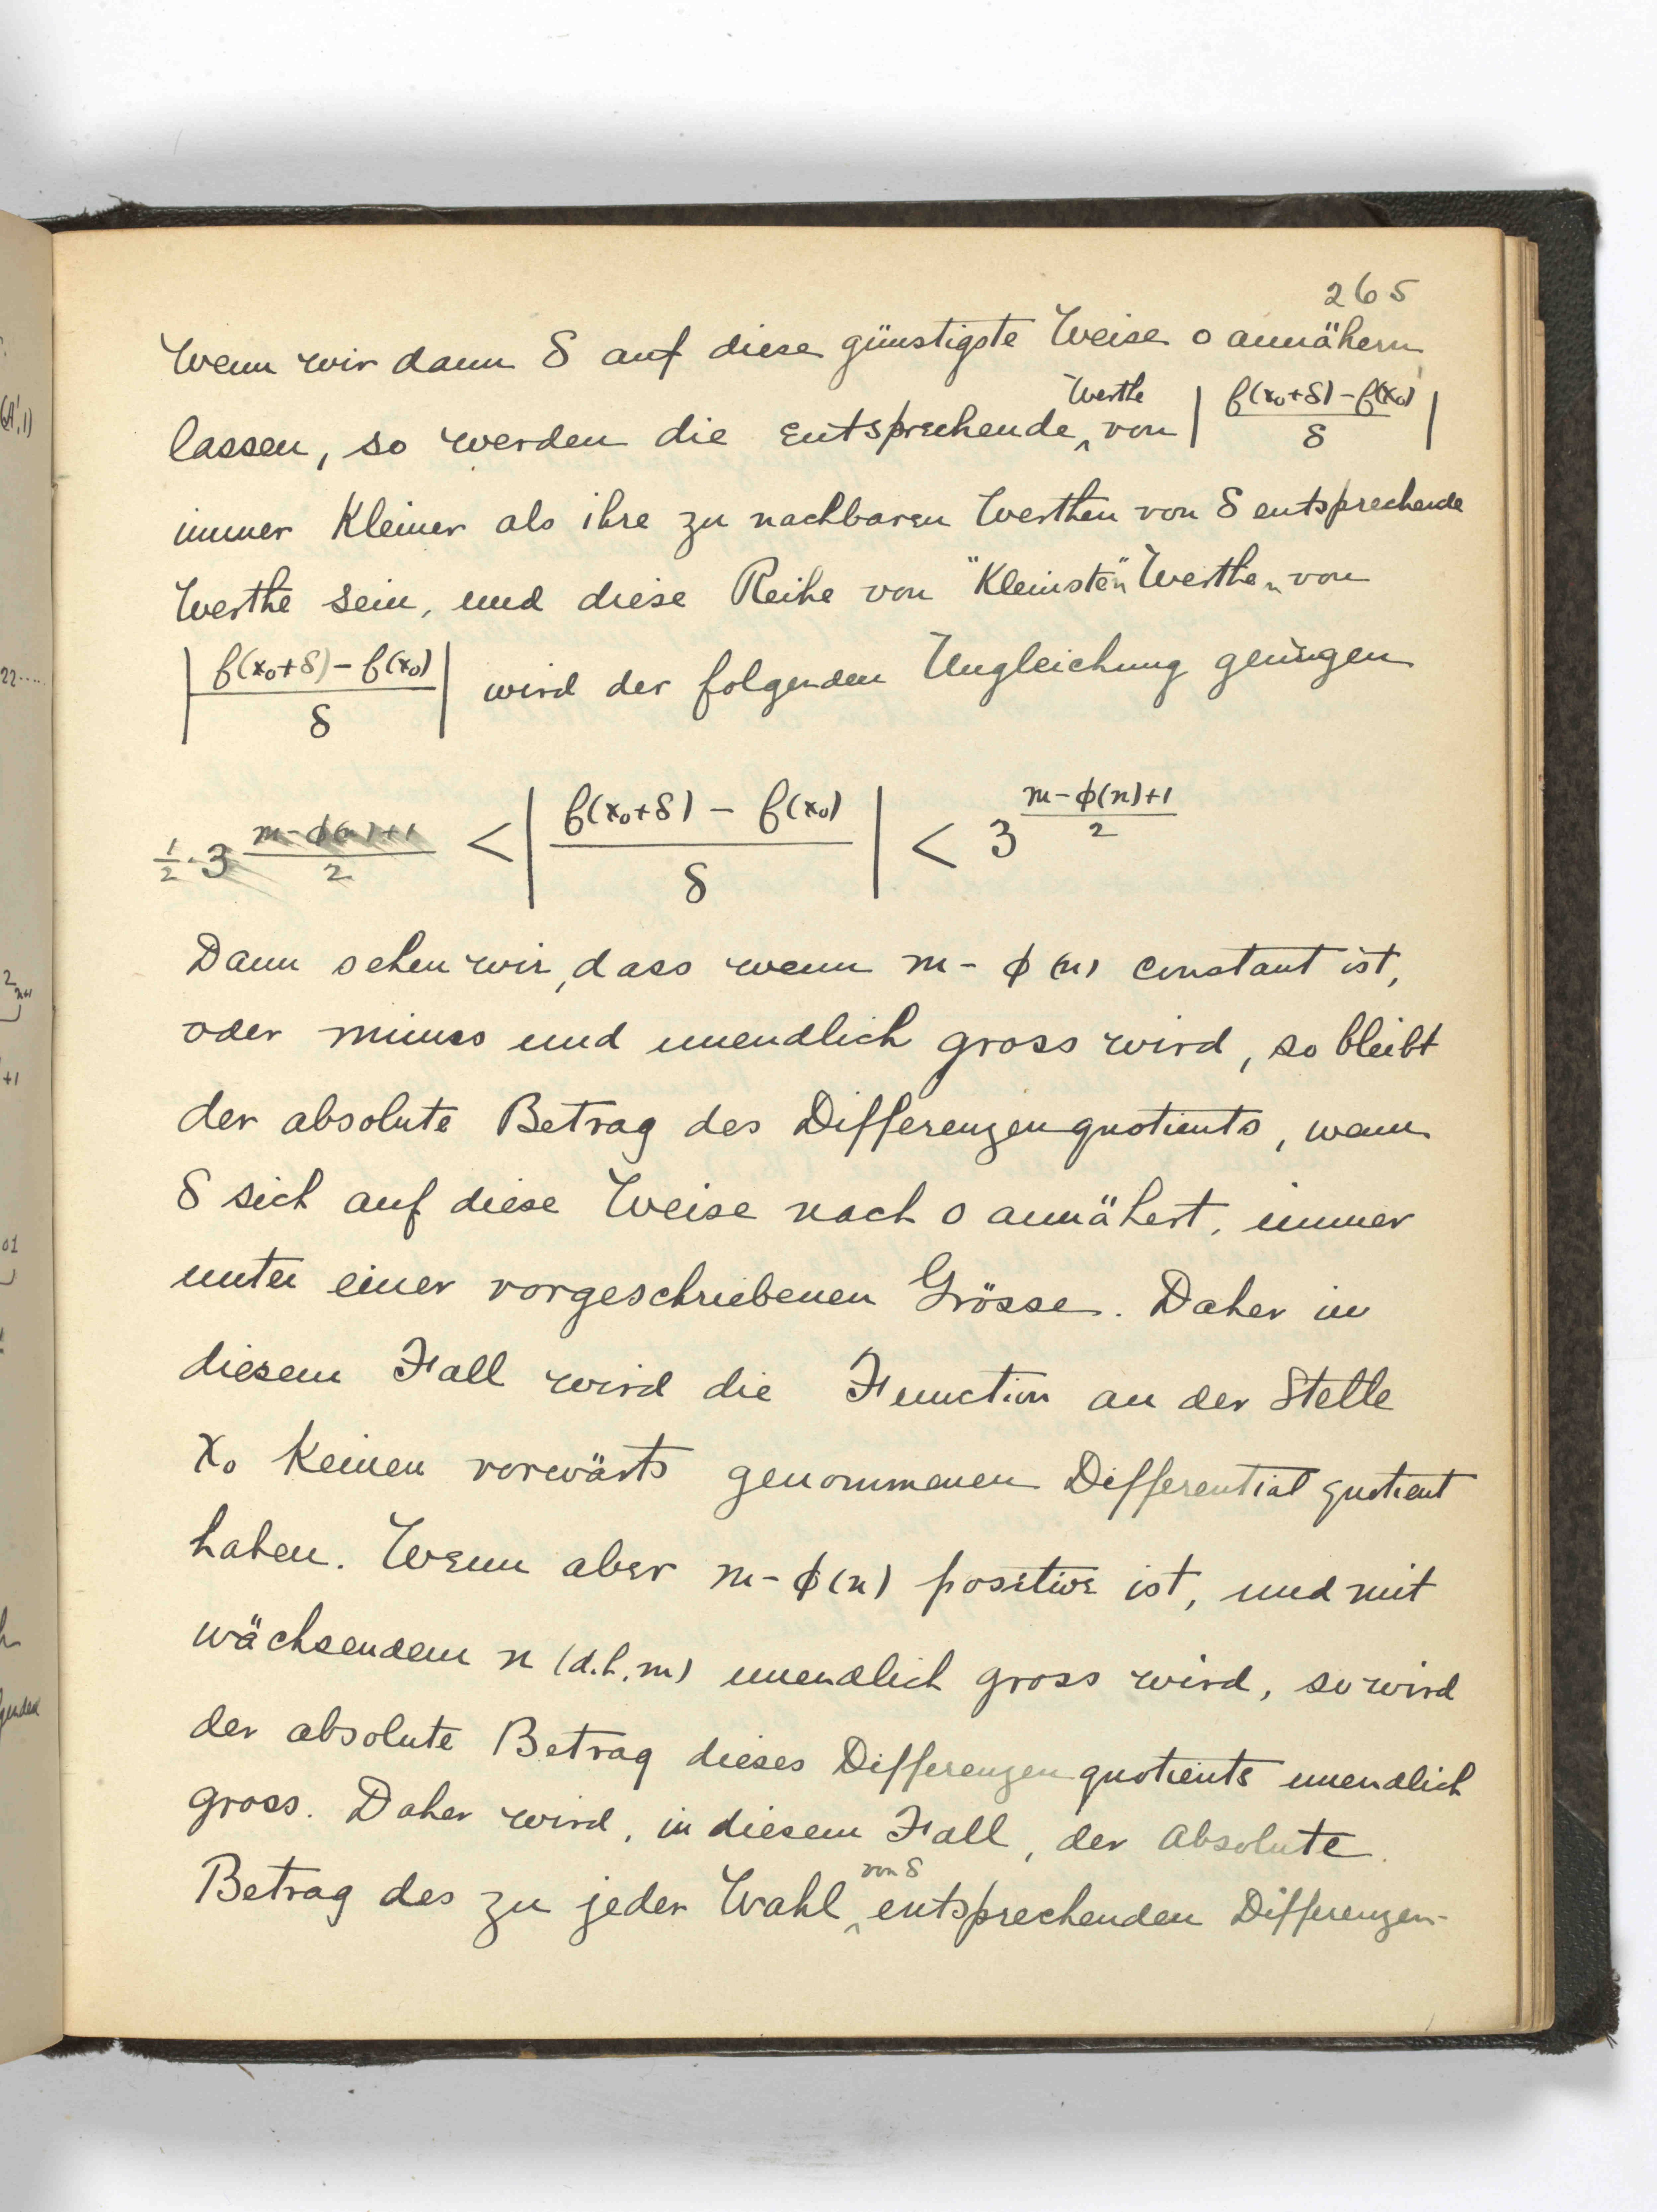 265
Wenn wir dann δ auf diese günstigste Weise 0 annähern
lassen, so werden die entsprechende ‸Werthe von | f(x₀+δ) - f(x₀) / δ |
immer kleiner als ihre zu nachbaren Werthen von δ entsprechende
Werthe sein, und diese Reihe von "kleinsten" Werthen von
| f(x₀+δ) - f(x₀) / δ | wird der folgenden Ungleichung genügen
1/2 · 3^((m-ϕ(n)+1)/2) < | f(x₀+δ) - f(x₀) / δ | < 3^((m-ϕ(n)+1)/2)
Dann sehen wir, dass wenn m - ϕ(n) constant ist,
oder minus und unendlich gross wird, so bleibt
der absolute Betrag des Differenzenquotients, wenn
δ sich auf diese Weise nach 0 annähert, immer
unter einer vorgeschriebenen Grösse. Daher in
diesem Fall wird die Function an der Stelle
x₀ keinen vorwärts genommenen Differentialquotient
haben. Wenn aber m - ϕ(n) positive ist, und mit
wächsendem n (d.h. m) unendlich gross wird, so wird
der absolute Betrag dieses Differenzenquotients unendlich
gross. Daher wird, in diesem Fall, der absolute
Betrag des zu jeder Wahl ‸von δ entsprechenden Differenzen-